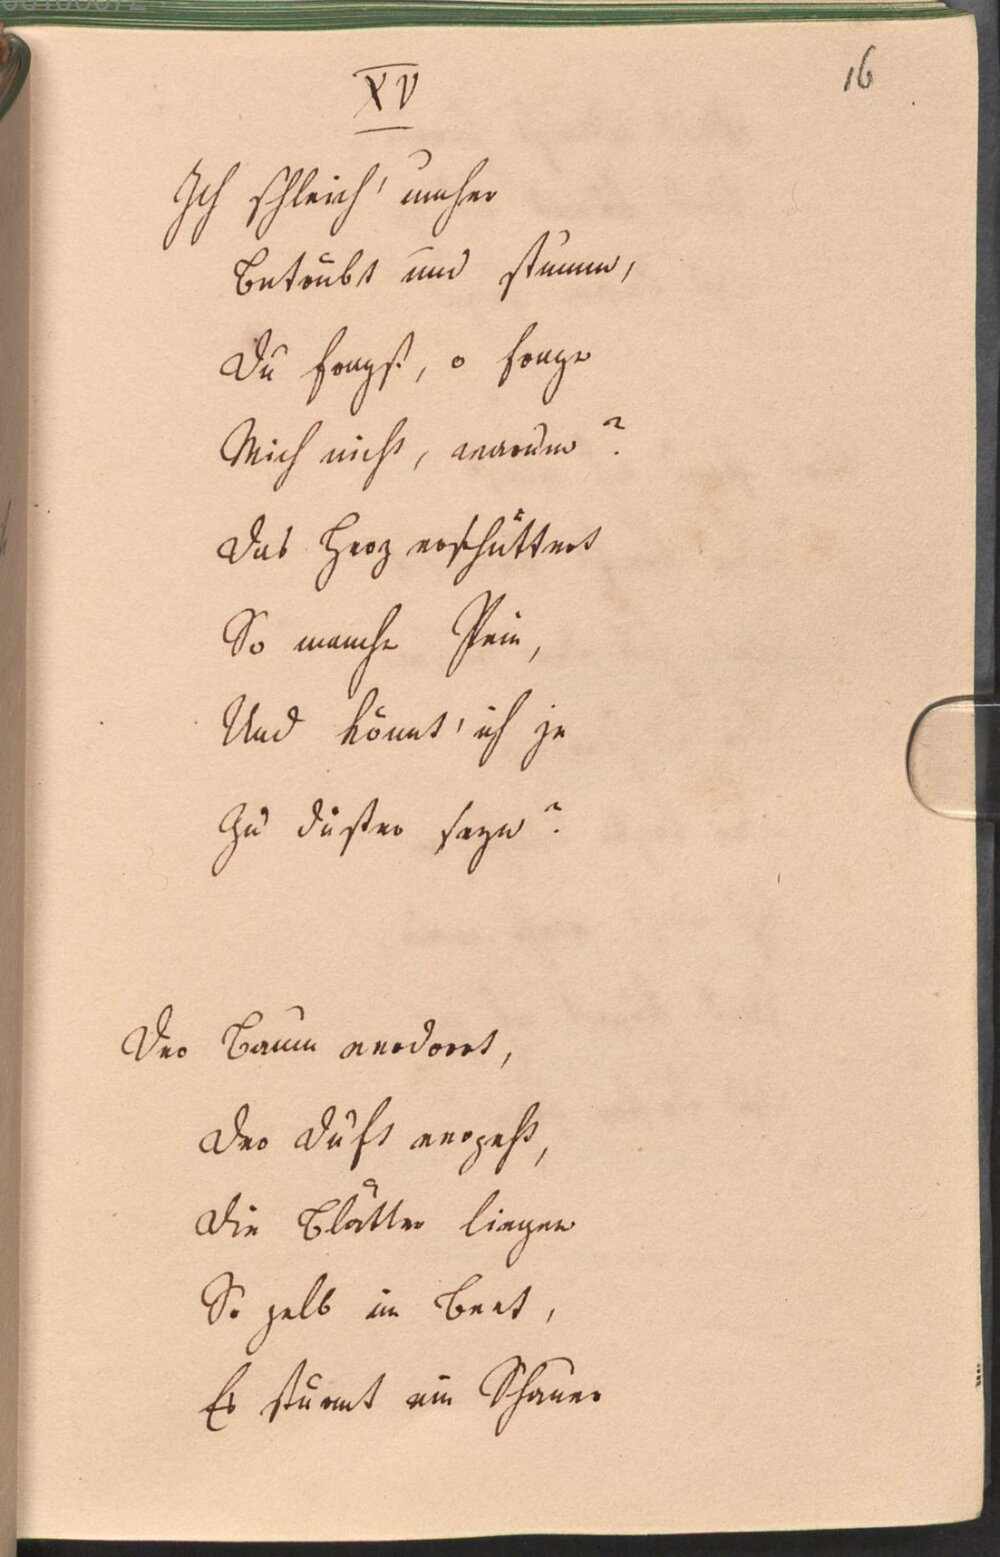 16
XV
Ich schleich' umher
Betrübt und stumm,
Du fragst, o frage
Mich nicht, warum?
Das Herz erschüttert
So manche Pein,
Und könnt' ich je
Zu düster seyn?
Der Baum verdorrt,
Der Duft vergeht,
Die Blätter liegen
So gelb im Beet,
Es stürmt ein Schauer